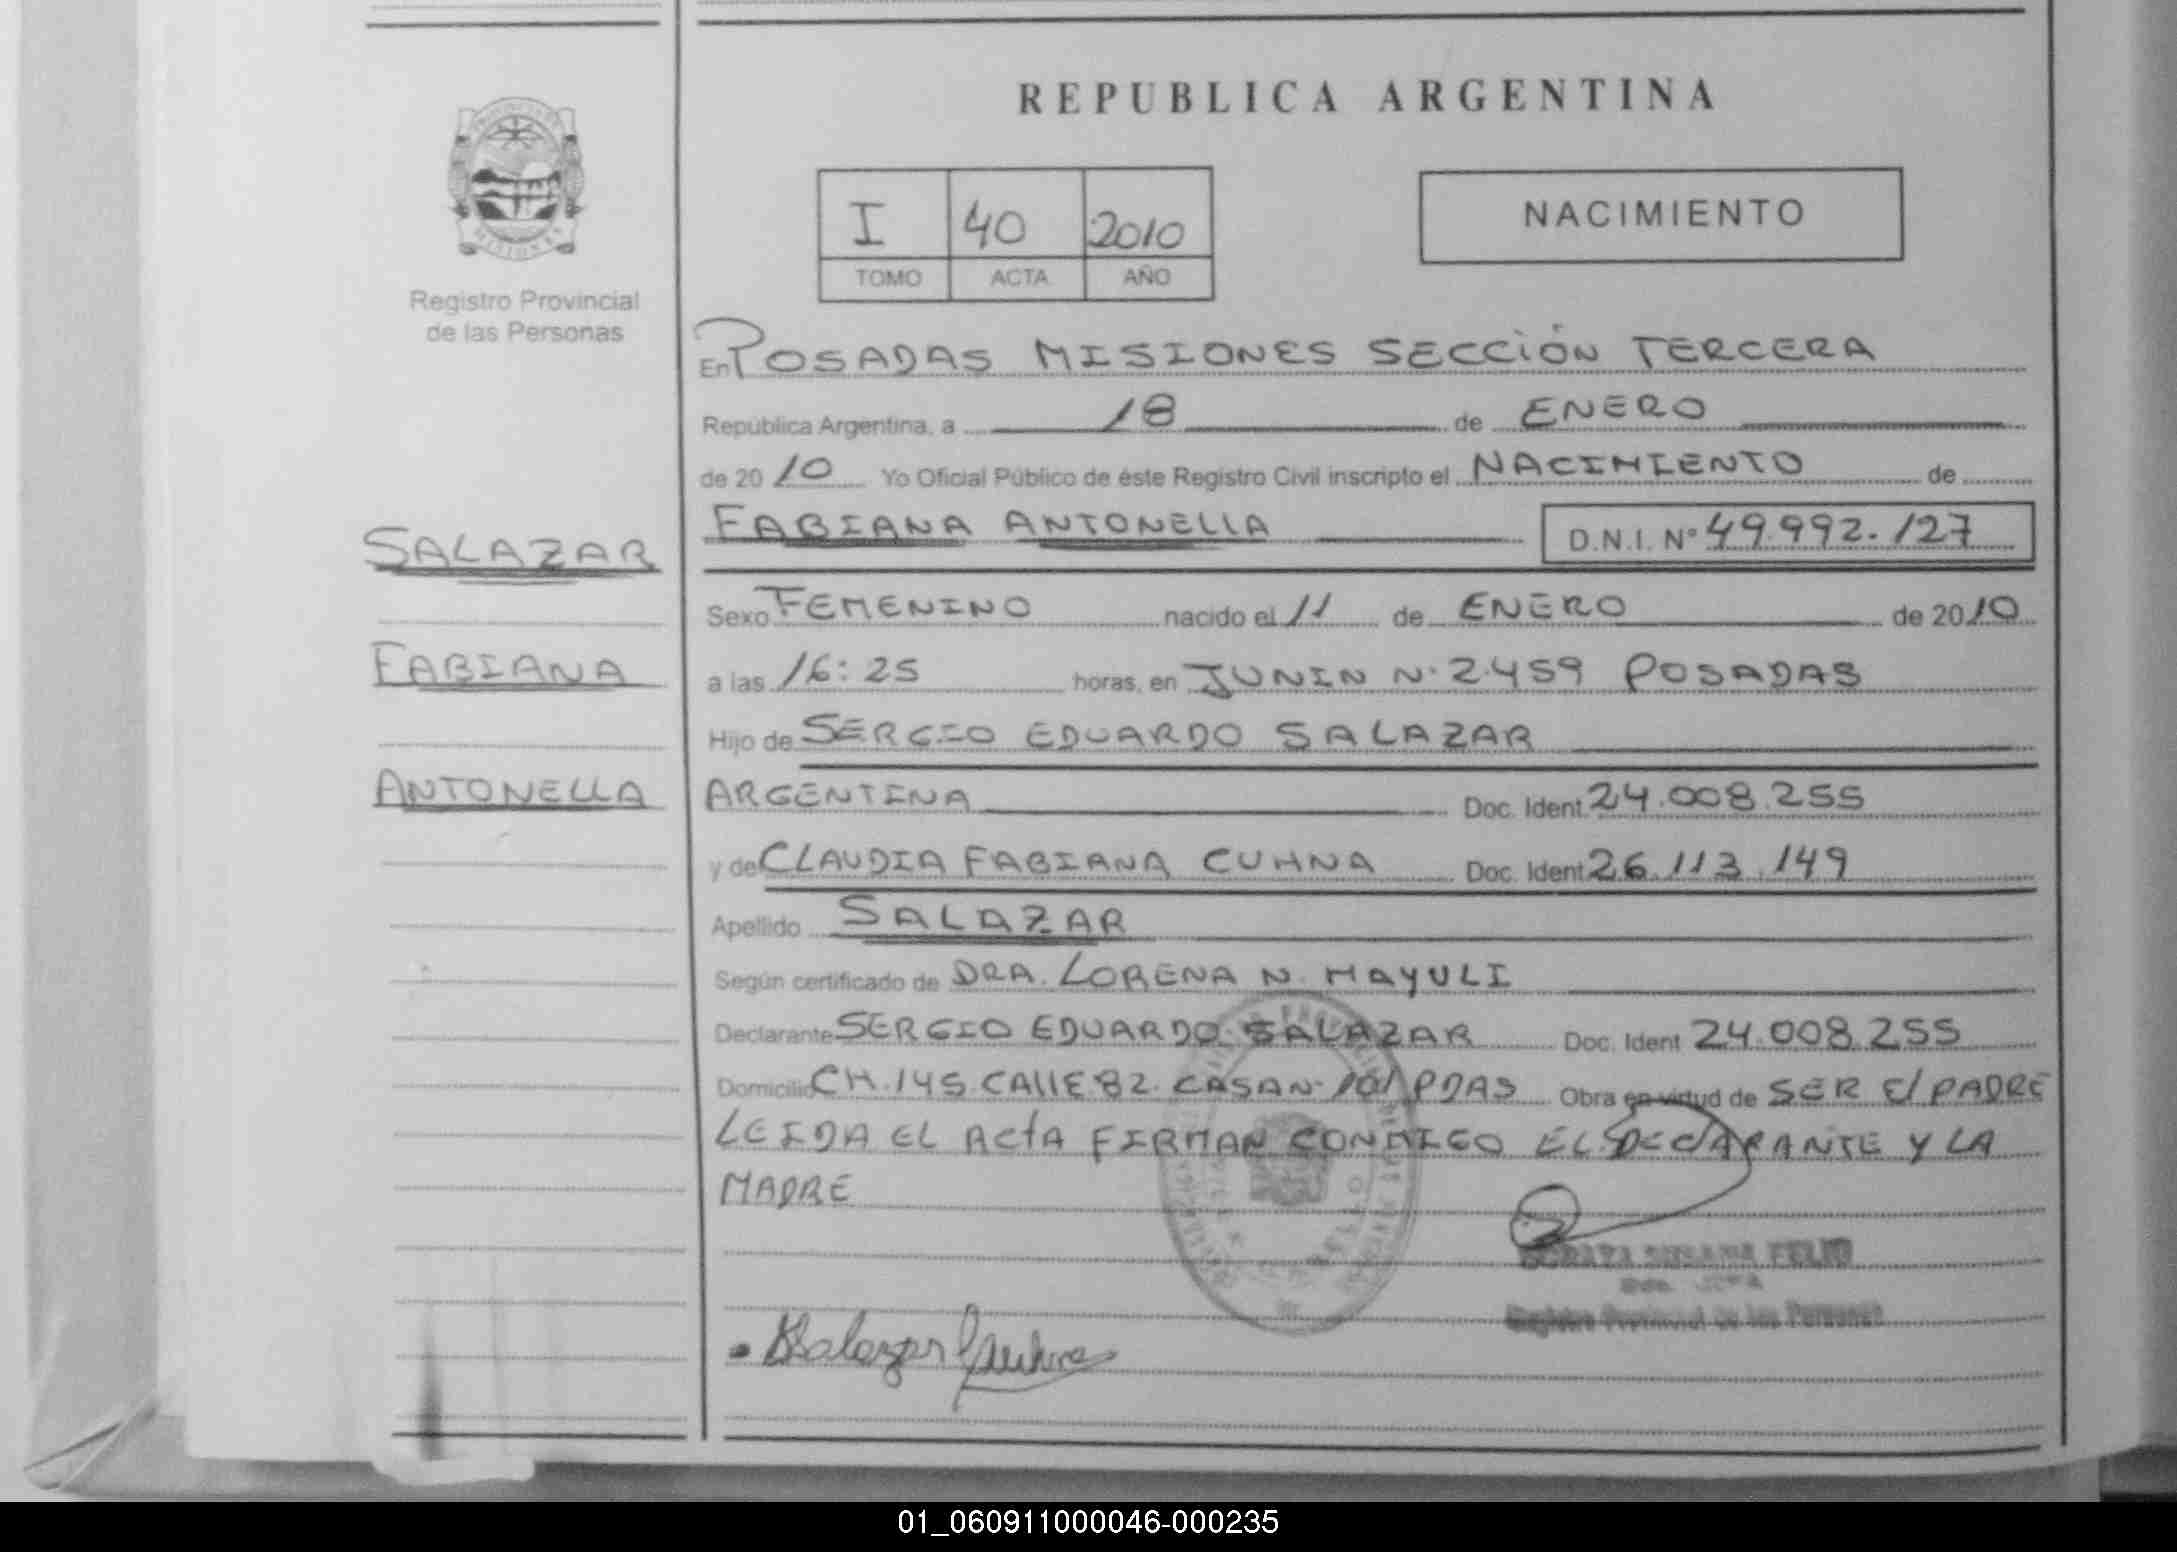 REPUBLICA ARGENTINA
I 40 2010
TOMO ACTA AÑO
NACIMIENTO
MISIONES
Registro Provincial
de las Personas
En POSADAS MISIONES SECCIÓN TERCERA
República Argentina, a 18 de ENERO
de 2010 Yo Oficial Público de éste Registro Civil inscripto el NACIMIENTO de
SALAZAR
FABIANA
ANTONELLA
FABIANA ANTONELLA D.N.I. Nº 49.992.127
Sexo FEMENINO nacido el 11 de ENERO de 2010
a las 16:25 horas, en JUNIN N. 2.459 POSADAS
Hijo de SERGIO EDUARDO SALAZAR
ARGENTINA Doc. Ident. 24.008.255
y de CLAUDIA FABIANA CUHNA Doc. Ident 26.113.149
Apellido SALAZAR
Según certificado de DRA. LORENA N. MAYULI
Declarante SERGIO EDUARDO SALAZAR Doc. Ident 24.008.255
Domicilio CH.145.CALLE 82. CASA N. 101 PDAS Obra en virtud de SER El PADRE
LEIDA EL ACTA FIRMAN CONMIGO EL DECLARANTE Y LA
MADRE
SUSANA FELIO
Registro Provincial de las Personas
Salazar
01_060911000046-000235